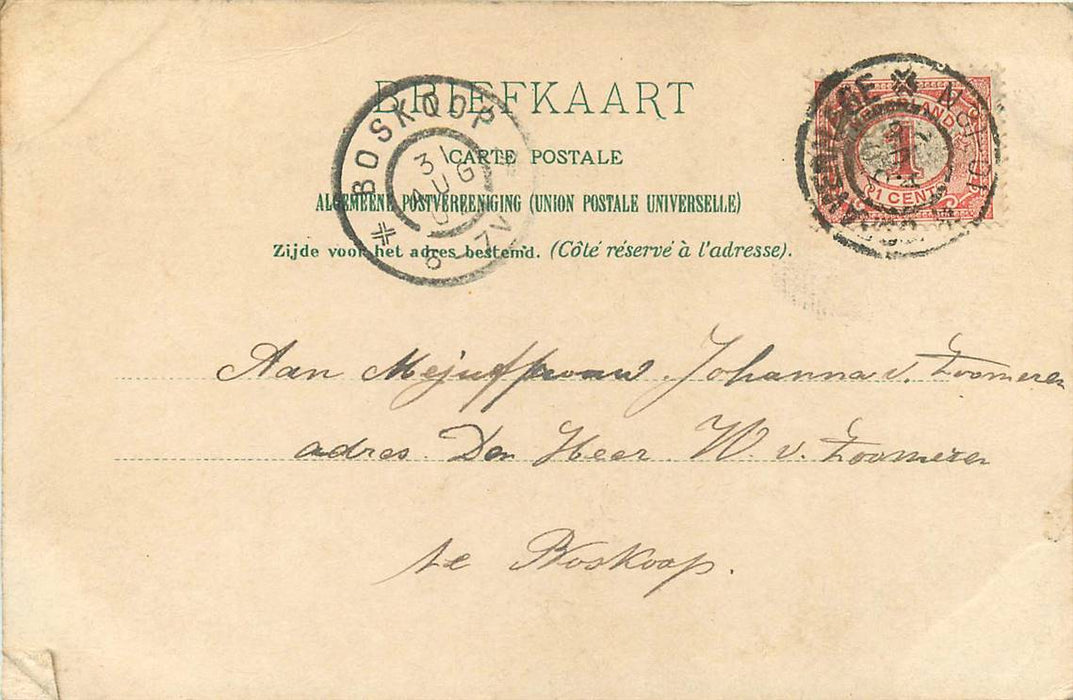 BRIEFKAART
CARTE POSTALE
ALGEMEENE POSTVEREENIGING (UNION POSTALE UNIVERSELLE)
Zijde voor het adres bestemd. (Côté réservé à l'adresse).
BOSKOOP
31
AUG
1
1 CENT
Aan Mejuffrouw Johanna v. Zoomeren
adres Den Heer W v. Zoomeren
te Boskoop.